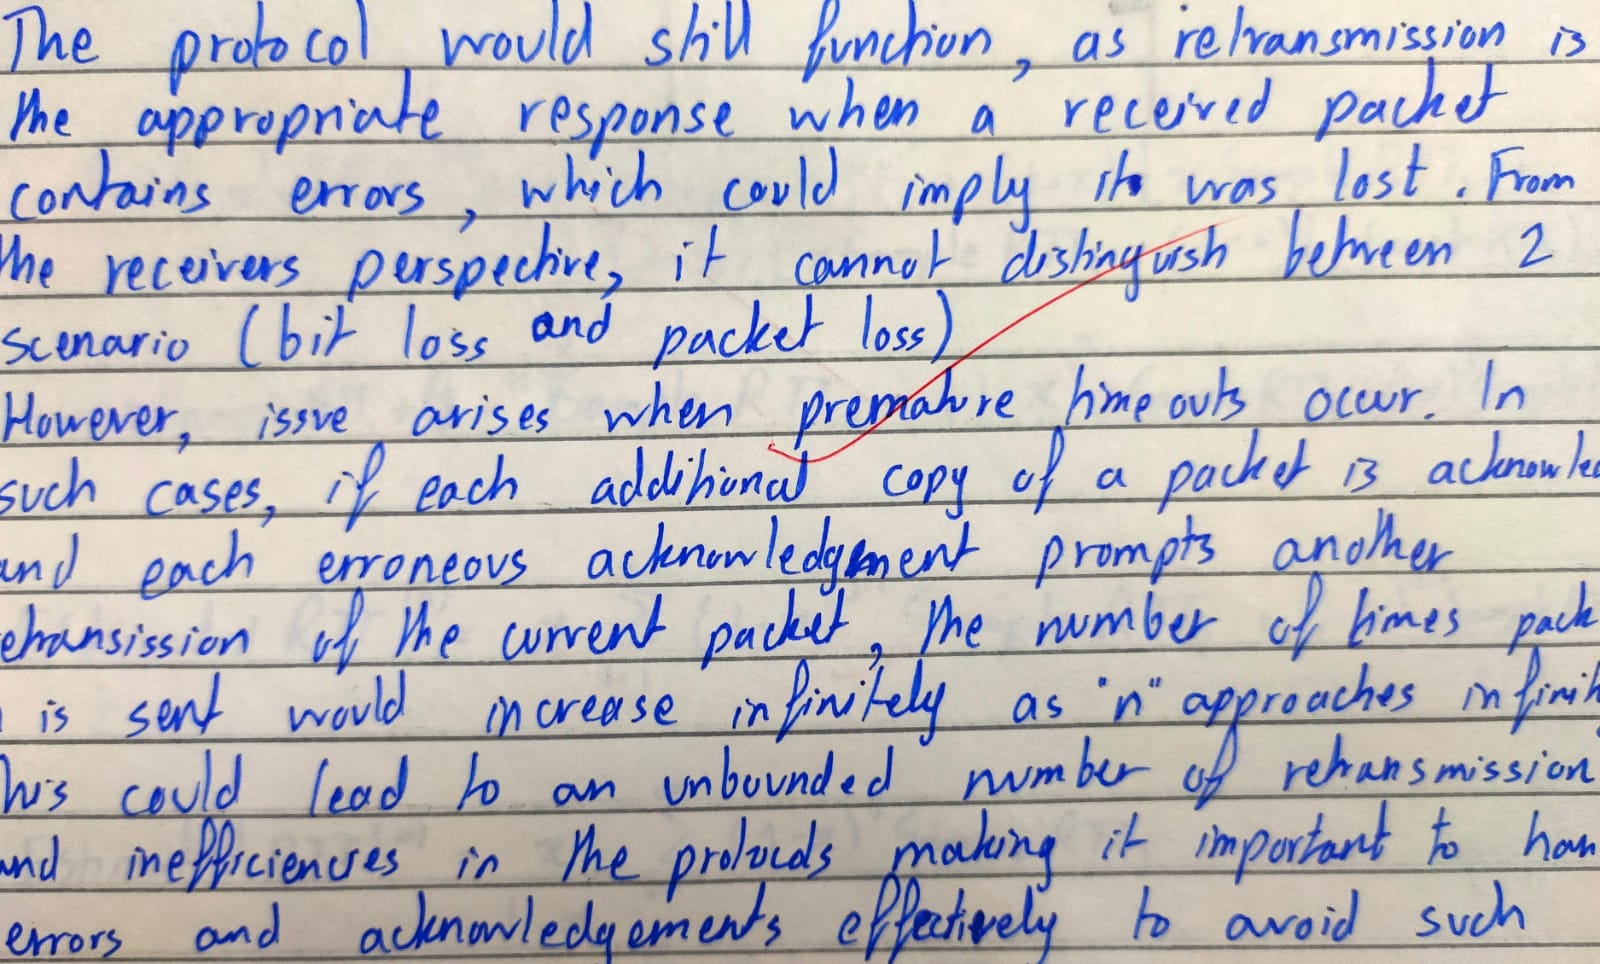 The protocol would still function, as retransmission is
the appropriate response when a received packet
contains errors, which could imply it was lost. From
the receivers perspective, it cannot distinguish between 2
scenario (bit loss and packet loss)
However, issue arises when premature timeouts occur. In
such cases, if each additional copy of a packet is acknowled
and each erroneous acknowledgement prompts another
etransission of the current packet, the number of times pack
is sent would increase infinitely as "n" approaches infinit
This could lead to an unbounded number of retransmission
and inefficiences in the protocols making it important to han
errors and acknowledgements effectively to avoid such